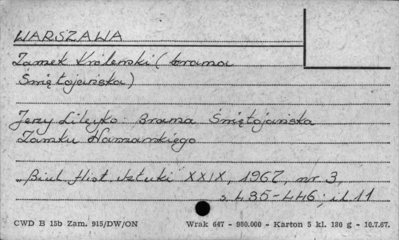 WARSZAWA
Zamek Królewski (brama
Świętojańska)
Jerzy Lileyko Brama Świętojańska
Zamku Warszawskiego
„Biul. Hist. Sztuki XXIX, 1967, nr. 3,
s. 435-446; il. 11
CWD B 15b Zam. 915/DW/ON Wrak 647 - 900.000 - Karton 5 kl. 180 g - 10.7.67.